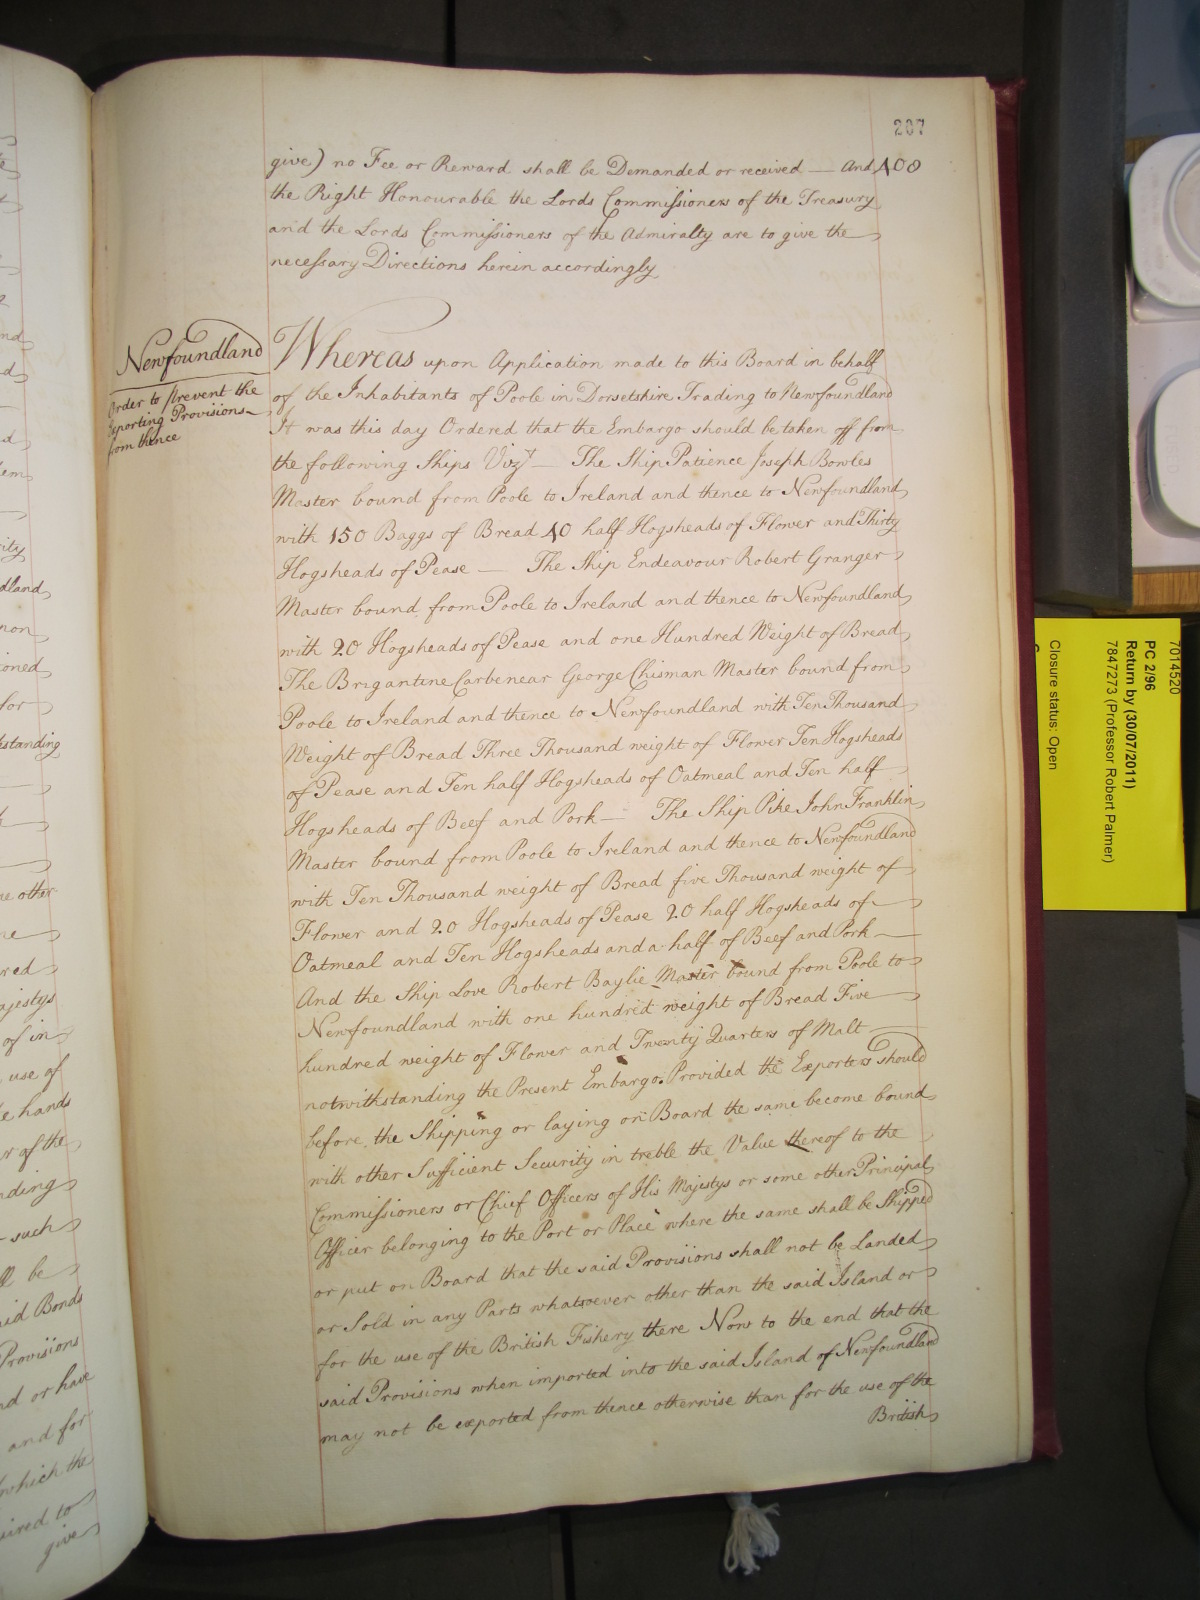 207
408
give) no Fee or Reward shall be Demanded or received — And
the Right Honourable the Lords Commissioners of the Treasury
and the Lords Commissioners of the Admiralty are to give the
necessary Directions herein accordingly
Newfoundland
Order to prevent the
exporting Provisions
from thence
Whereas upon Application made to this Board in behalf
of the Inhabitants of Poole in Dorsetshire Trading to Newfoundland
It was this day Ordered that the Embargo should be taken off from
the following Ships Vizt — The Ship Patience Joseph Bowles
Master bound from Poole to Ireland and thence to Newfoundland
with 150 Baggs of Bread 40 half Hogsheads of Flower and Thirty
Hogsheads of Pease — The Ship Endeavour Robert Granger
Master bound from Poole to Ireland and thence to Newfoundland
with 20 Hogsheads of Pease and one Hundred Weight of Bread
The Brigantine Carbenear George Chisman Master bound from
Poole to Ireland and thence to Newfoundland with Ten Thousand
Weight of Bread Three Thousand weight of Flower Ten Hogsheads
of Pease and Ten half Hogsheads of Oatmeal and Ten half
Hogsheads of Beef and Pork — The Ship Pike John Franklin
Master bound from Poole to Ireland and thence to Newfoundland
with Ten Thousand weight of Bread five Thousand weight of
Flower and 20 Hogsheads of Pease 20 half Hogsheads of
Oatmeal and Ten Hogsheads and a half of Beef and Pork —
And the Ship Love Robert Baylie Master bound from Poole to
Newfoundland with one hundred weight of Bread Five
hundred weight of Flower and Twenty Quarters of Malt
notwithstanding the Present Embargo. Provided the Exporters should
before the Shipping or laying on Board the same become bound
with other Sufficient Security in treble the Value thereof to the
Commissioners or Chief Officers of His Majestys or some other Principal
Officer belonging to the Port or Place where the same shall be Shipped
or put on Board that the said Provisions shall not be Landed
or Sold in any Parts whatsoever other than the said Island or
for the use of the British Fishery there Now to the end that the
said Provisions when imported into the said Island of Newfoundland
may not be exported from thence otherwise than for the use of the
British
dland
non
ioned
for
standing
other
red
ajestys
of in
use of
hands
of the
such
be
Bonds
Provisions
or have
and for
which the
to
give
7014520
PC 2/96
Return by (30/07/2011)
7847273 (Professor Robert Palmer)
Closure status: Open